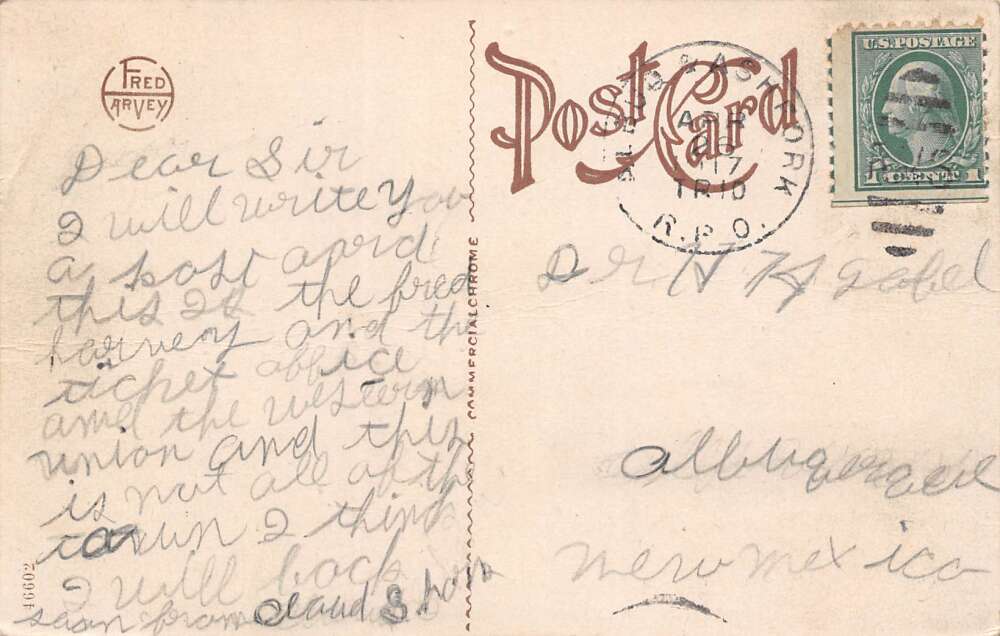 FRED
HARVEY
Post Card
ALBUQ & ASH FORK
APR
26
117
TR 10
R.P.O.
U.S. POSTAGE
1 CENT 1
Dear Sir
I will write you
a post
this Is the fred
harvey and the
ticket office
and the western
union and this
is not all of the
town I think
I will back
soon from Claud S.
Dr H H
albuquerque
new mexico
COMMERCIALCHROME
46602